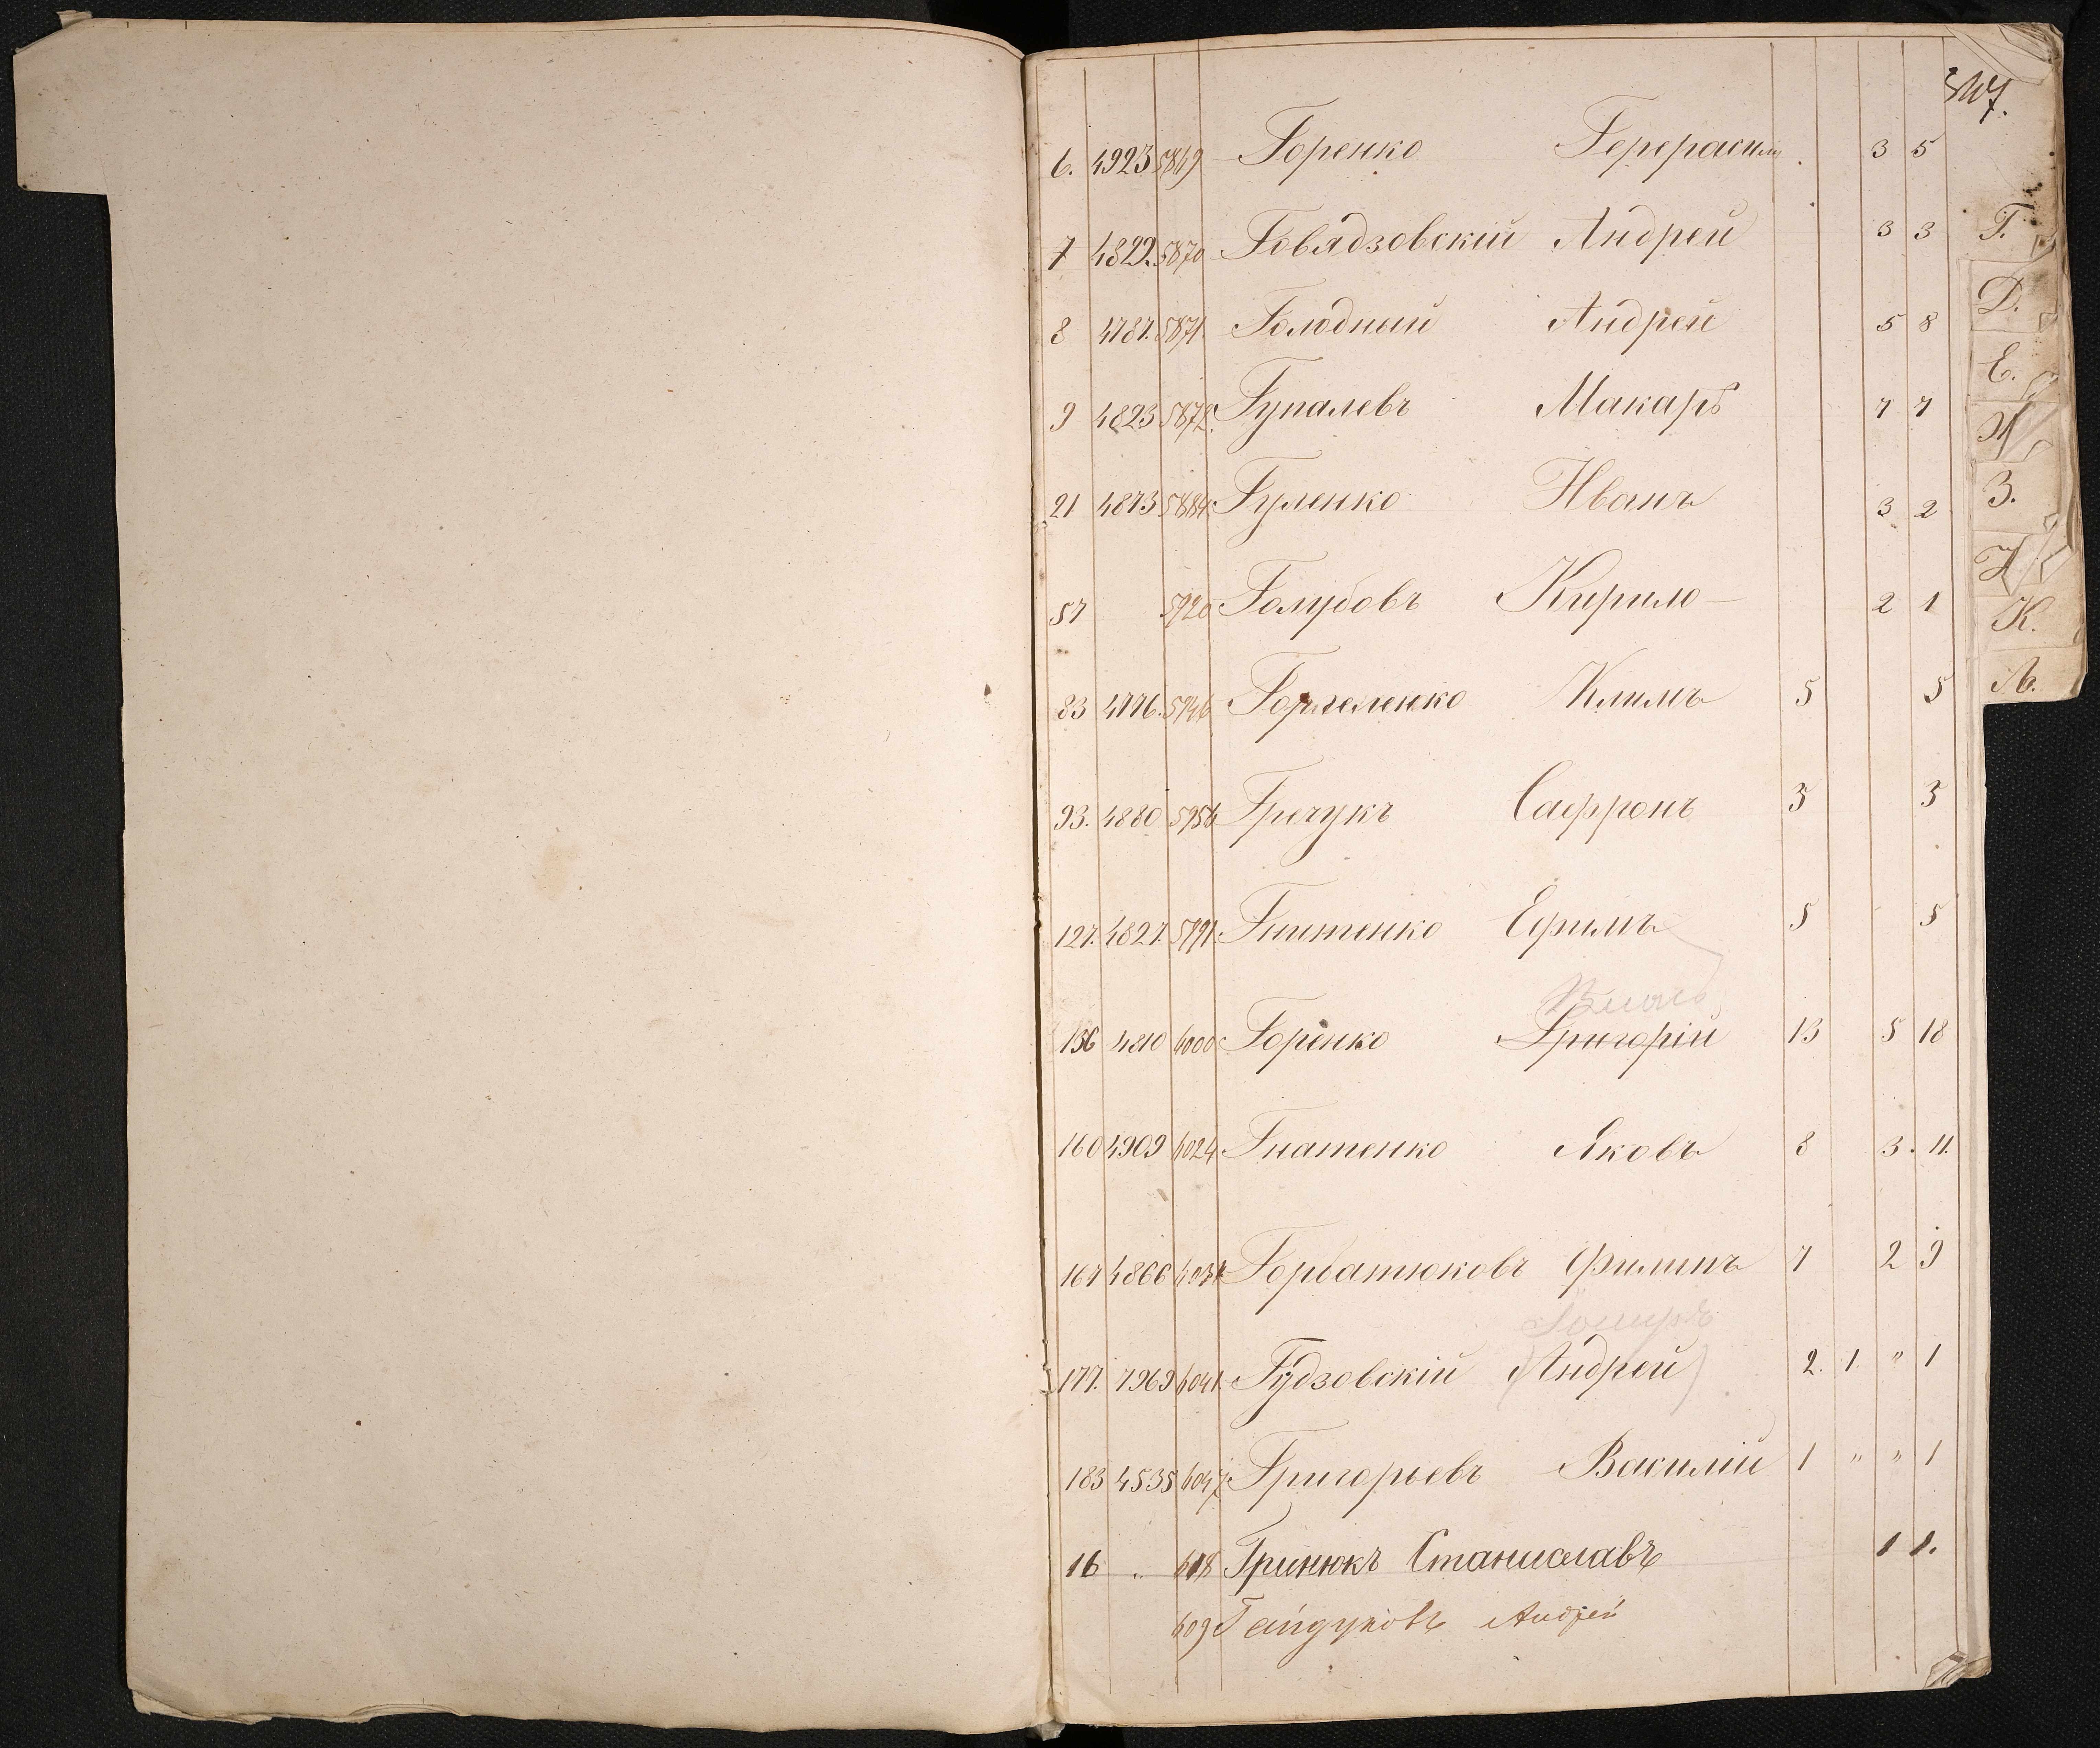 6. 4923 5869 Горенко Герерасим 3 5
7 4822. 5870 Говядзовскій Андрей 3 3
8 4787. 5871. Голодный Андрей 5 8
9 4823 5872. Гупалевъ Макаръ 7 7
21 4873 5884 Гуленко Иванъ 3 2
57 5920 Голубовъ Кирило 2 1
83 4776. 5946 Климъ 5 5
93. 4880 5956 Гречукъ Сафронъ 3 3
127. 4827. 5991. Гнитенко Ефимъ 5 5
136 4810 6000 Горенко Григорій 13 5 18
160 4909 6024 Гнатенко Яковъ 8 3. 11.
167 4866 6031 Горбатюковъ Филипъ 7 2 9
177. 7969 6041. Гудзовскій (Андрей) 2. 1. " 1
183 4535 6047 Григорьевъ Василій 1 " " 1
16 618 Гринюкъ Станиславъ 1 1.
609 Гайдуковъ Андрей
Г.
Д.
Е.
Ж
З.
И
К.
Л.